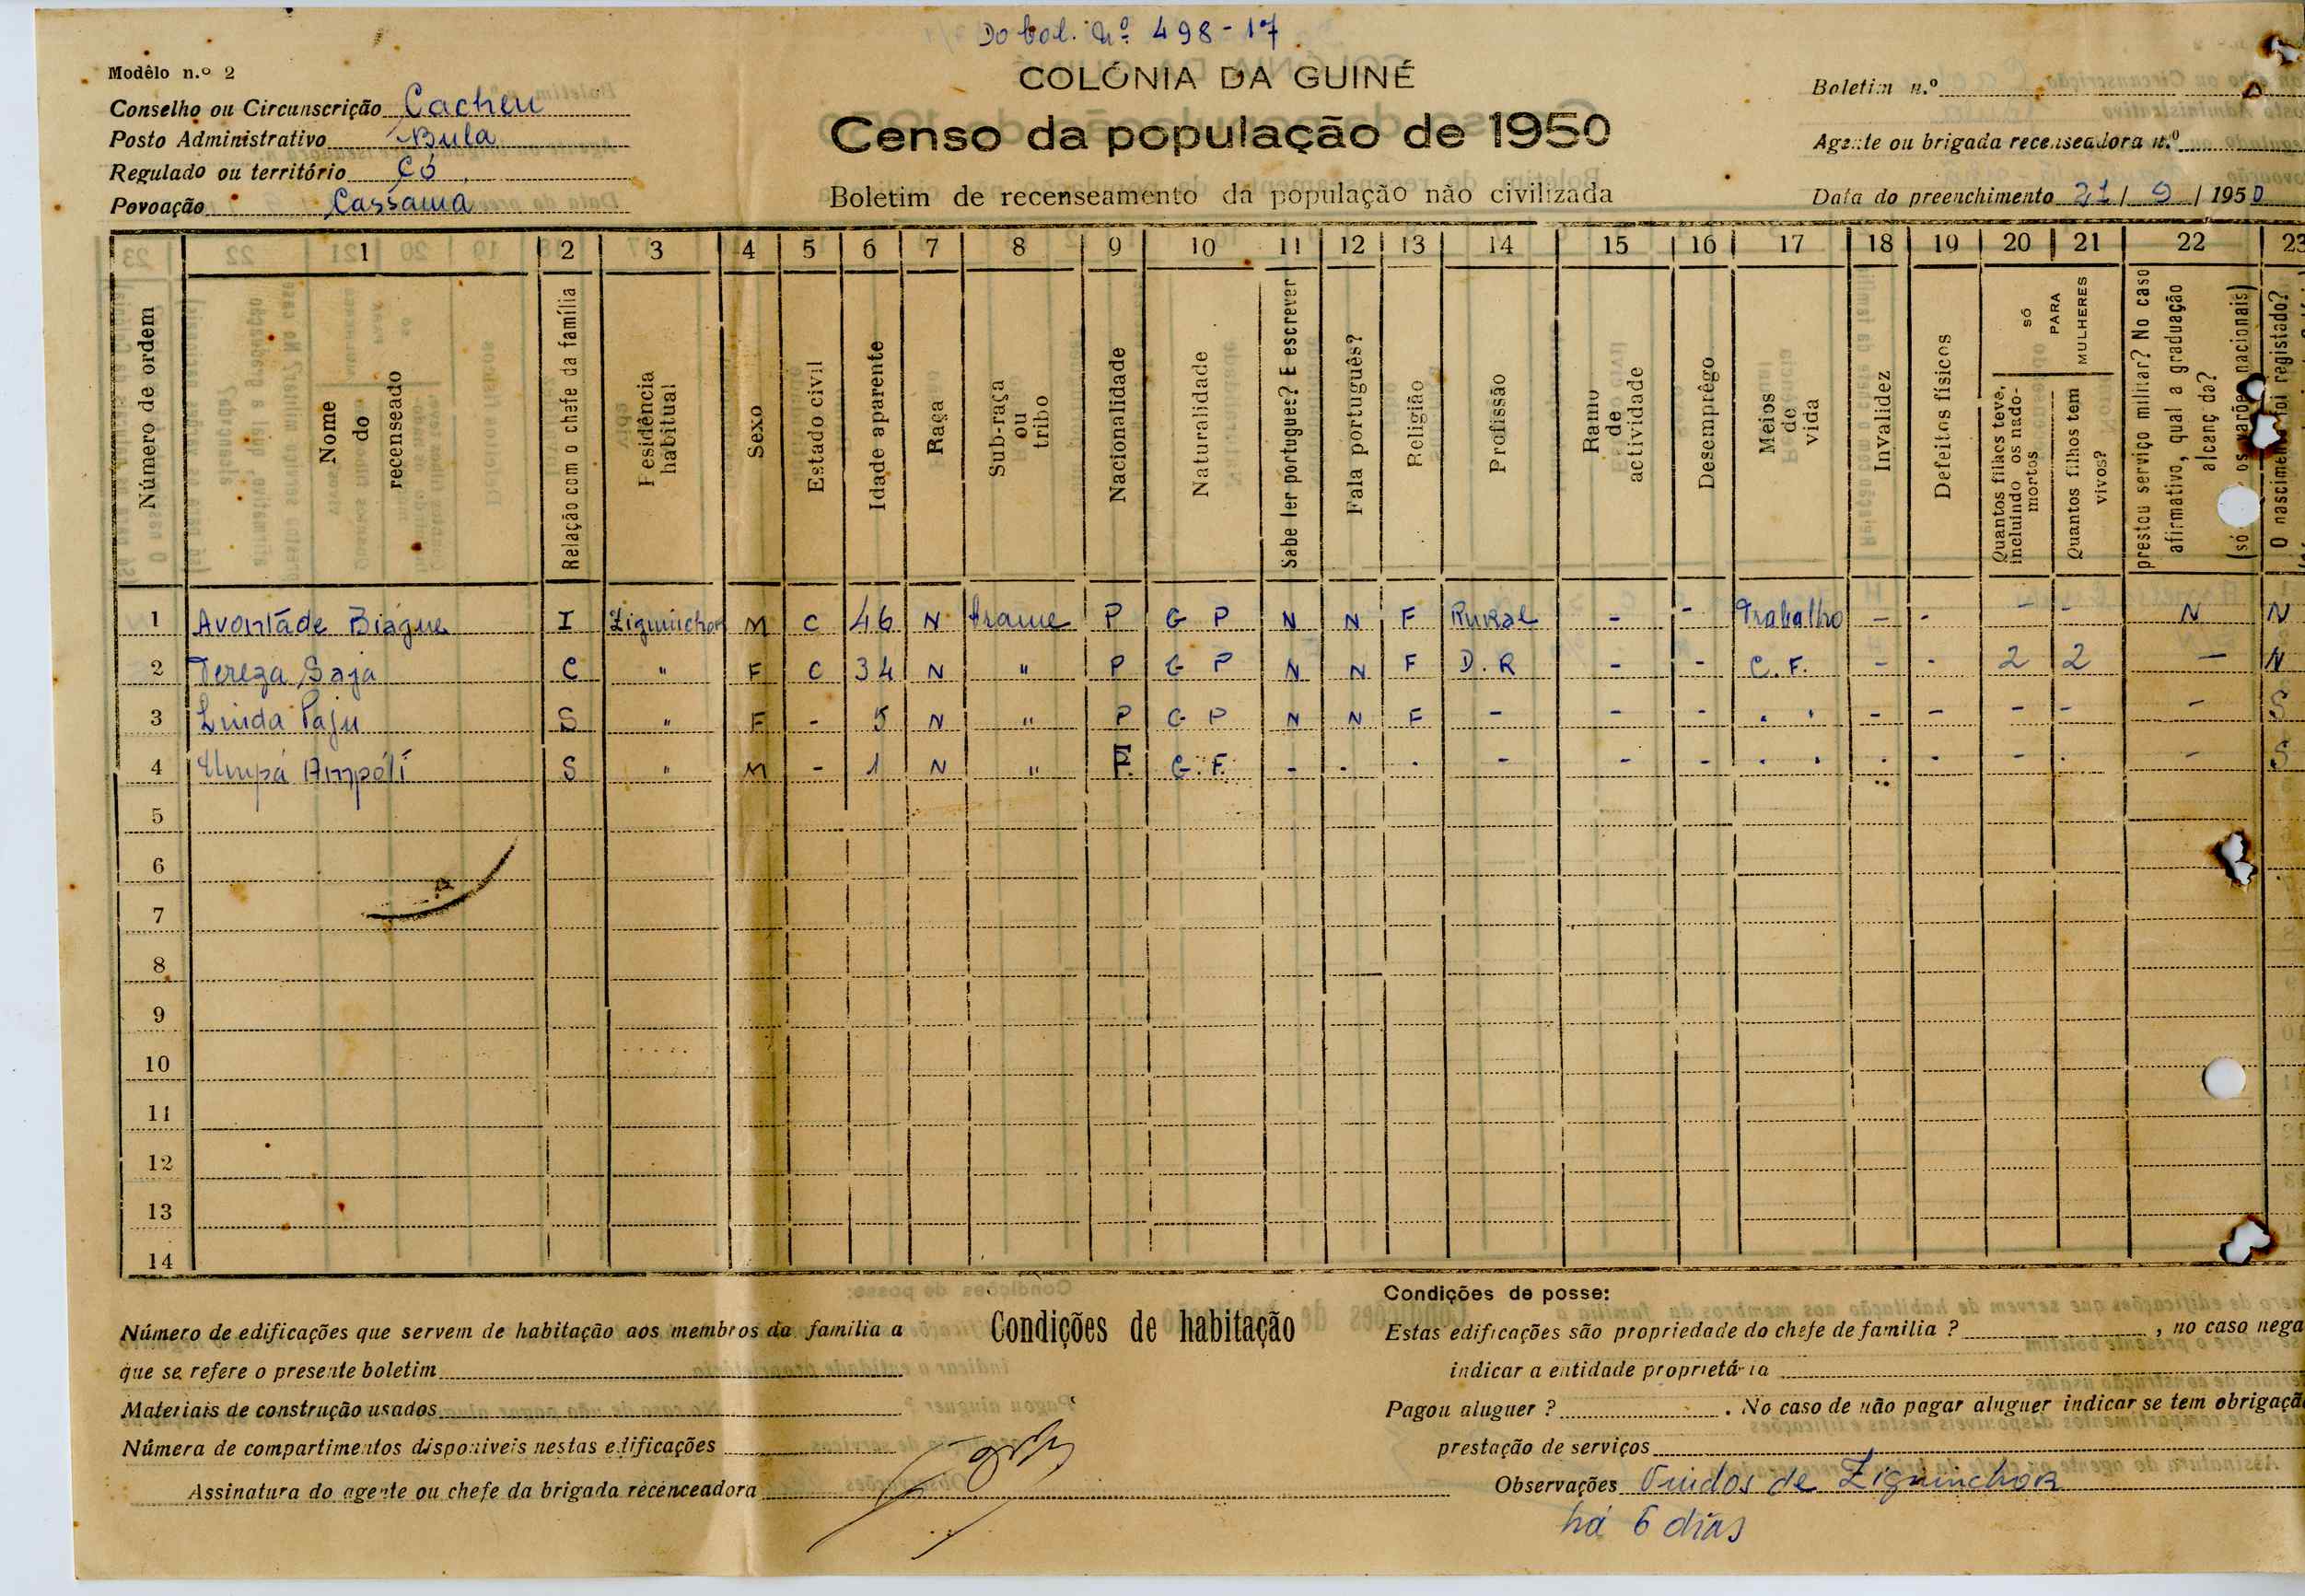 Do bol. Nº 498-17
Modêlo n.º 2
COLÓNIA DA GUINÉ
Boletim n.º
Conselho ou Circunscrição Cacheu
Censo da população de 1950
Posto Administrativo Bula
Agente ou brigada recenseadora n.º
Regulado ou território Có
Boletim de recenseamento da população não civilizada
Povoação Cassama
Data do preenchimento 21 / 9 / 1950
1 2 3 4 5 6 7 8 9 10 11 12 13 14 15 16 17 18 19 20 21 22 23
Número de ordem
Nome do recenseado
Relação com o chefe da família
Residência habitual
Sexo
Estado civil
Idade aparente
Raça
Sub-raça ou tribo
Nacionalidade
Naturalidade
Sabe ler portugues? E escrever
Fala português?
Religião
Profissão
Ramo de actividade
Desemprêgo
Meios de vida
Invalidez
Defeitos físicos
SÓ PARA MULHERES
Quantos filhos teve, incluindo os nado-mortos
Quantos filhos tem vivos?
prestou serviço militar? No caso
afirmativo, qual a graduação
alcanç da?
(só os varões nacionais)
O nascimento foi registado?
1 Avontáde Biágue I Ziguinchor M C 46 N P G P N N F Rural - - Trabalho - - - - N N
2 Tereza Saja C " F C 34 N " P G P N N F D. R - - C. F. - - 2 2 - N
3 Linda Paju S " F - 5 N " P G P N N F - - - . . - - - - - S
4 Umpá Ampóli S " M - 1 N " F. G. F. - - . - - - . . . - - . - S
5
6
7
8
9
10
11
12
13
14
Condições de habitação
Número de edificações que servem de habitação aos membros da familia a
que se refere o presente boletim
Materiais de construção usados
Númera de compartimentos disponiveis nestas edificações
Assinatura do agente ou chefe da brigada recenceadora
Condições de posse:
Estas edificações são propriedade do chefe de familia ? , no caso nega
indicar a entidade proprietária
Pagou aluguer ? . No caso de não pagar aluguer indicar se tem obrigaçã
prestação de serviços
Observações Vindos de Ziguinchor
há 6 dias